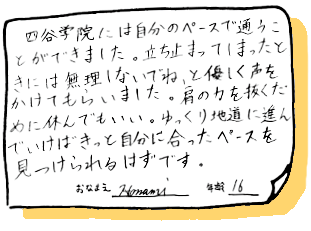 四谷学院には自分のペースで通うこ
とができました。立ち止まってしまったと
きには無理しないでね、と優しく声を
かけてもらいました。肩の力を抜くた
めに休んでもいい。ゆっくり地道に進ん
でいけばきっと自分に合ったペースを
見つけられるはずです。
おなまえ Honami 年齢 16